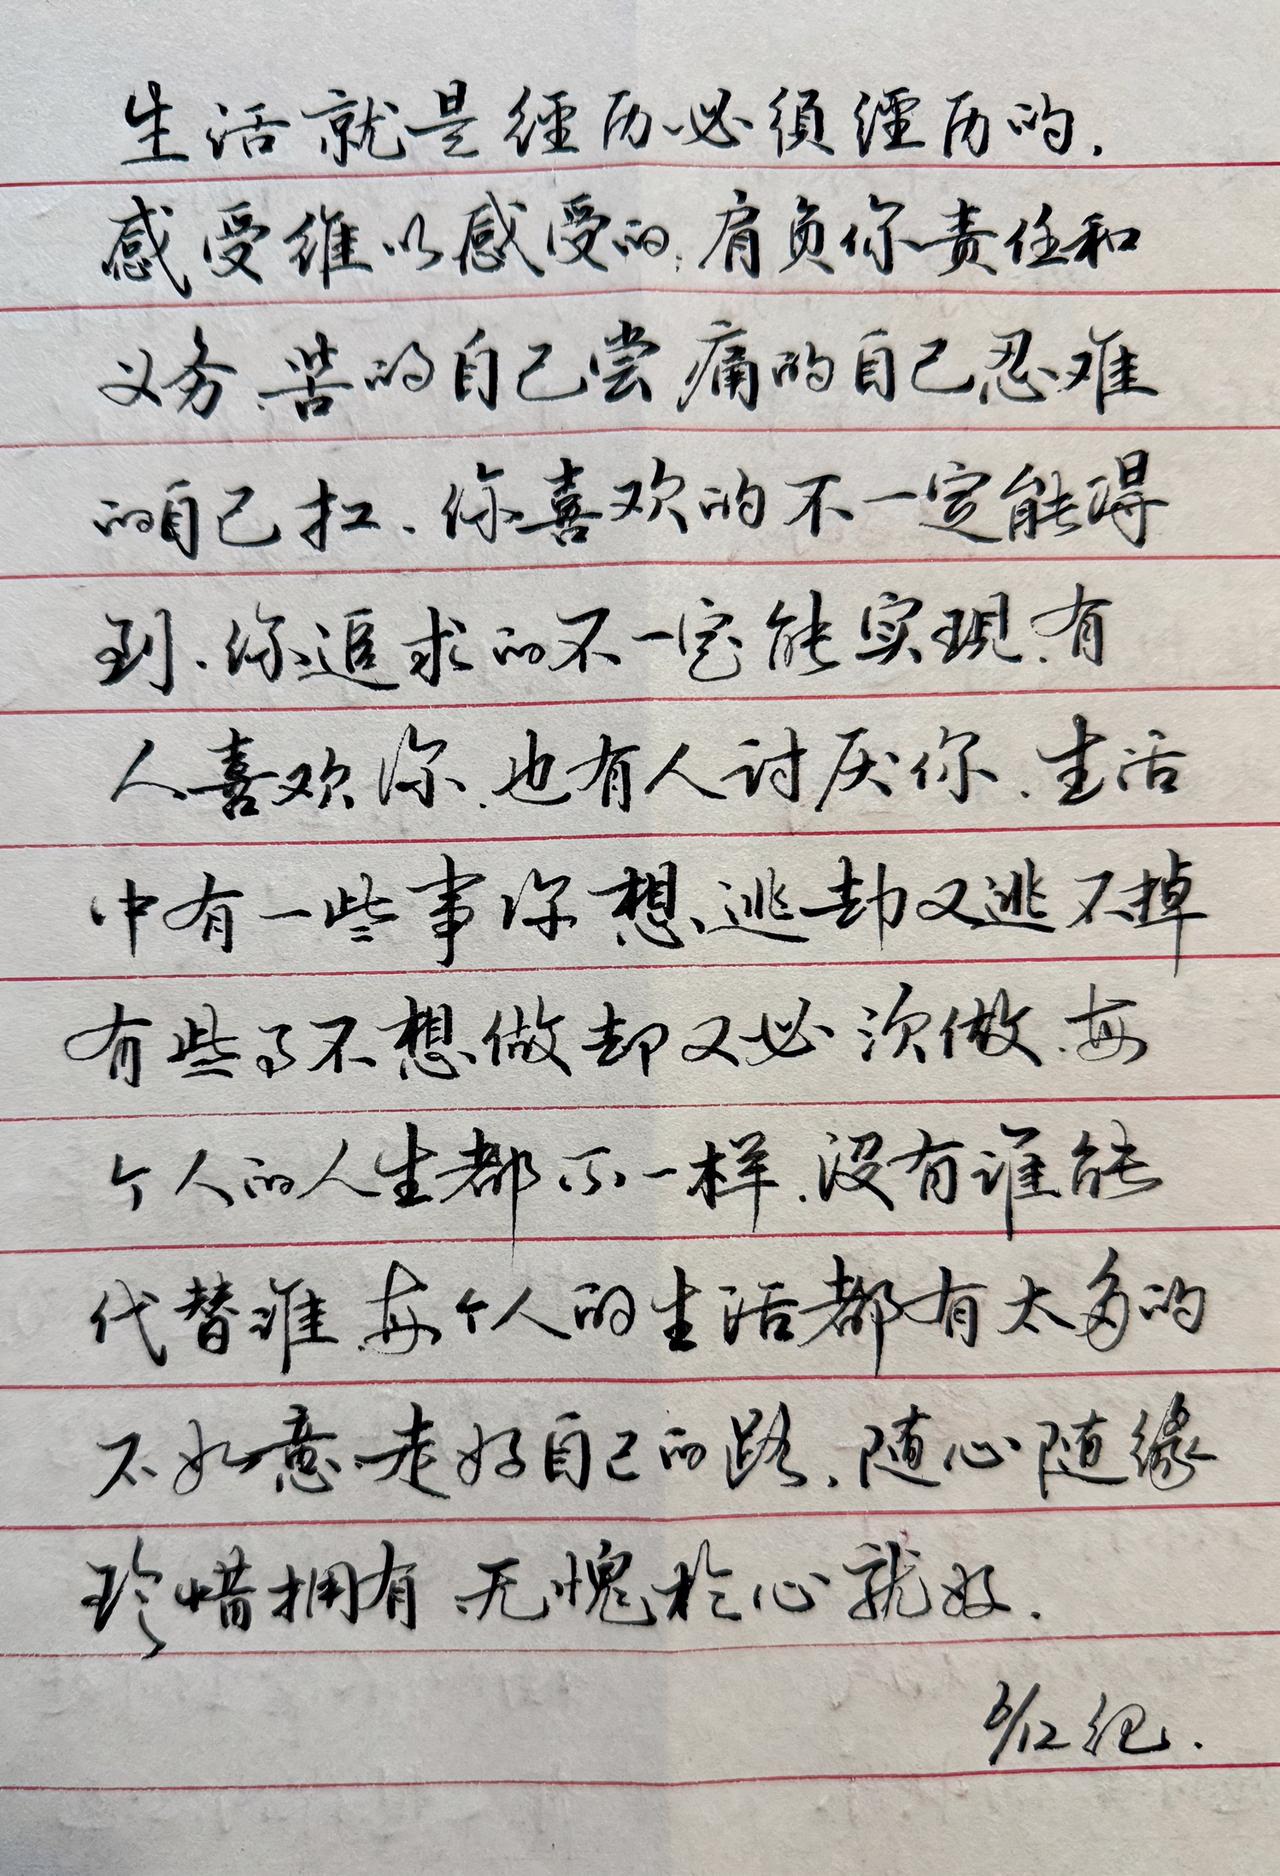 生活就是經历必須經历的.
感受维以感受的,肩负你责任和
义务、苦的自己尝痛的自己忍难
的自己扛.你喜欢的不一定能得
到.你追求的不一定能实现.有
人喜欢你.也有人讨厌你.生活
中有一些事你想逃却又逃不掉
有些事不想做却又必次做.每
个人的人生都不一样.没有谁能
代替谁.每个人的生活都有太多的
不如意走好自己的路.随心随缘
珍惜拥有.无愧於心就好.
6/12纪.